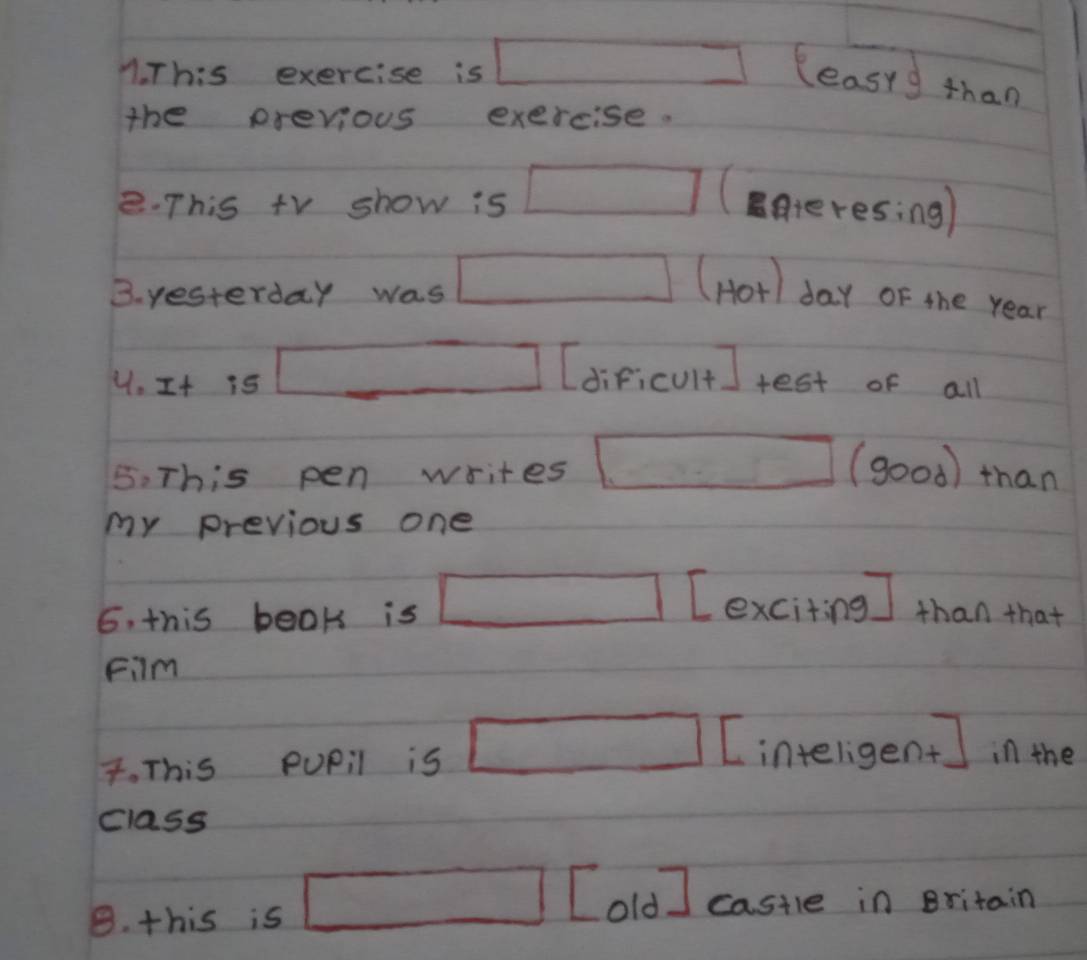 1.This exercise is (easy) than
the previous exercise.
2.This tv show is (interesing)
3.yesterday was (Hot) day OF the year
4.It is [dificult] test of all
5.This pen writes (good) than
my previous one
6.this book is [exciting] than that
Film
7.This pupil is [inteligent] in the
class
8.this is [old] castle in Britain